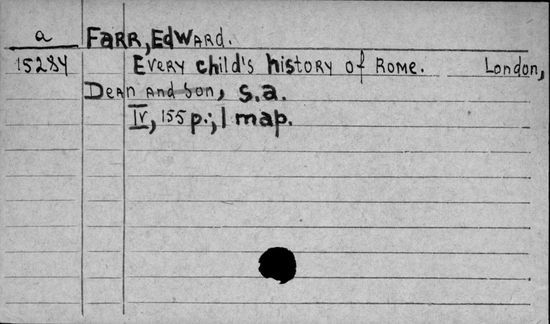 a FARR, EdWARD.
15284 EVERY child's history of ROME. London,
DEAN AND SON, s.a.
IV, 155 p., 1 map.